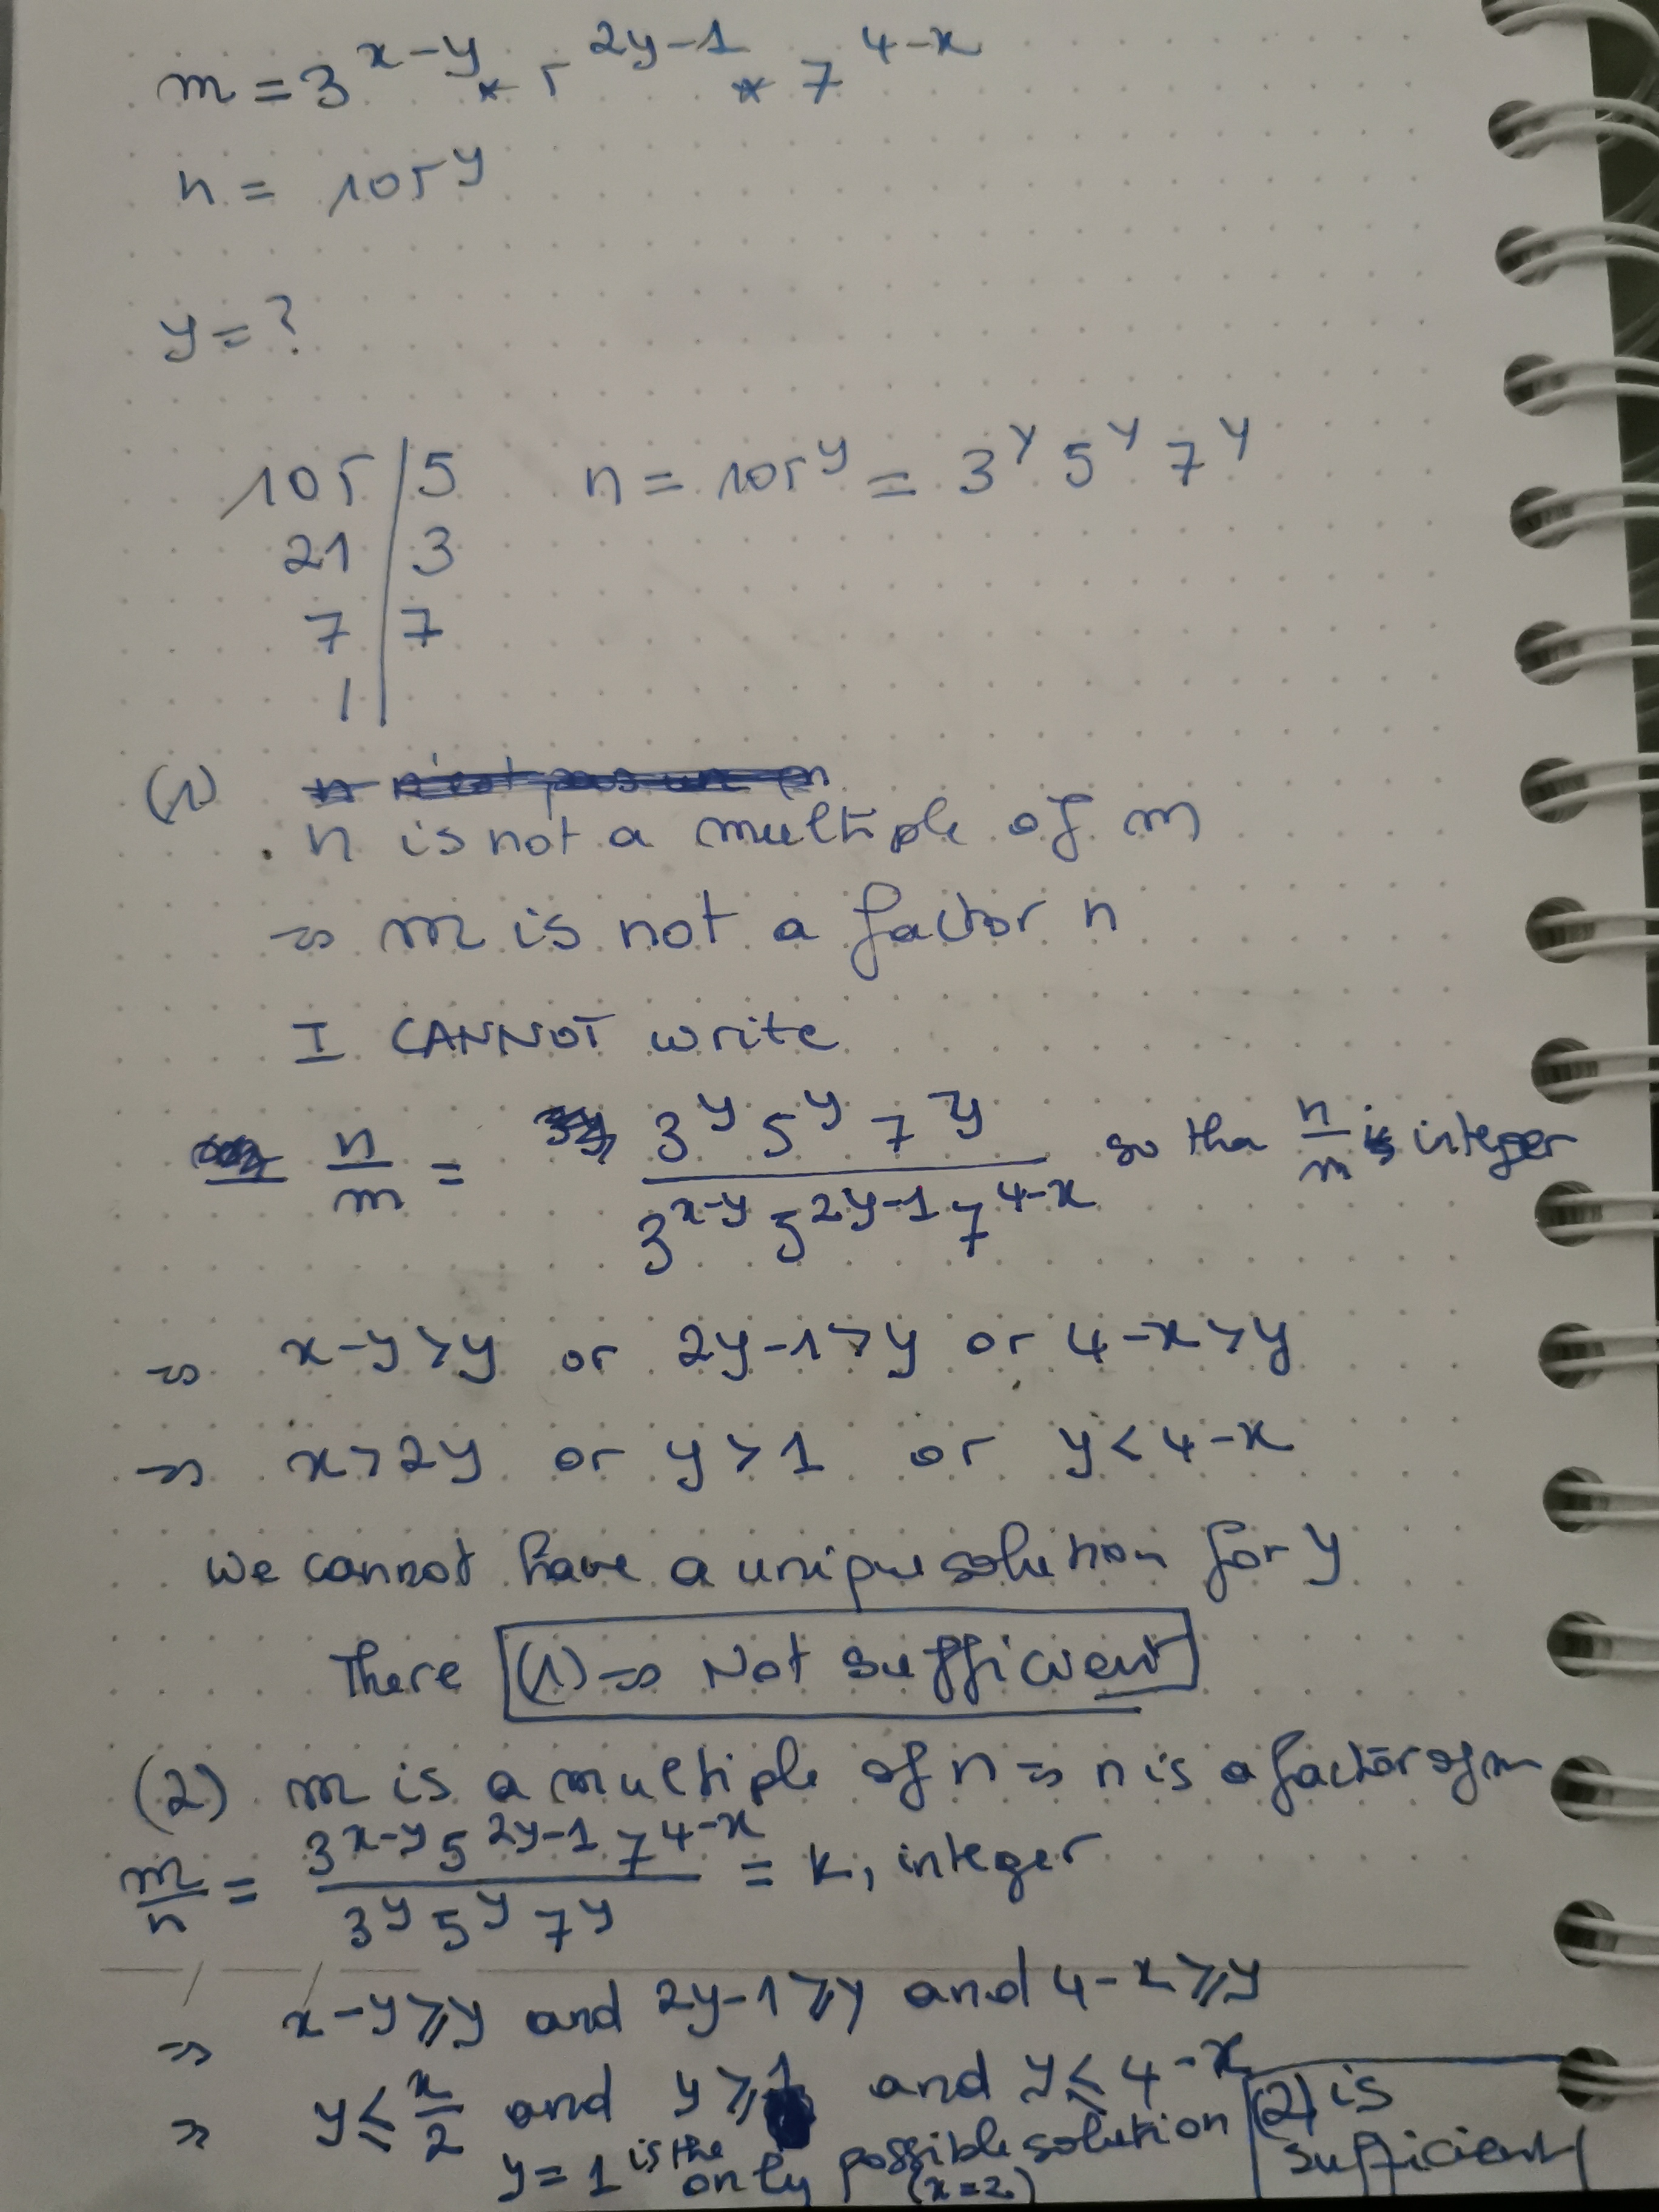 m = 3^{x-y} * 5^{2y-1} * 7^{4-x}
n = 105^y
y = ?
105 | 5 n = 105^y = 3^y 5^y 7^y
21 | 3
7 | 7
1 |
(1)
n is not a multiple of m
=> m is not a factor n
I CANNOT write
n/m = 3^y 5^y 7^y / 3^{x-y} 5^{2y-1} 7^{4-x} so tha n/m is integer
=> x-y > y or 2y-1 > y or 4-x > y
=> x > 2y or y > 1 or y < 4-x
We cannot have a unique solution for y
There (1) => Not sufficient
(2) m is a multiple of n => n is a factor of m
m/n = 3^{x-y} 5^{2y-1} 7^{4-x} / 3^y 5^y 7^y = k, integer
=> x-y ⩾ y and 2y-1 ⩾ y and 4-x ⩾ y
=> y ⩽ x/2 and y ⩾ 1 and y ⩽ 4-x
y = 1 is the only possible solution (x=2)
(2) is
sufficient